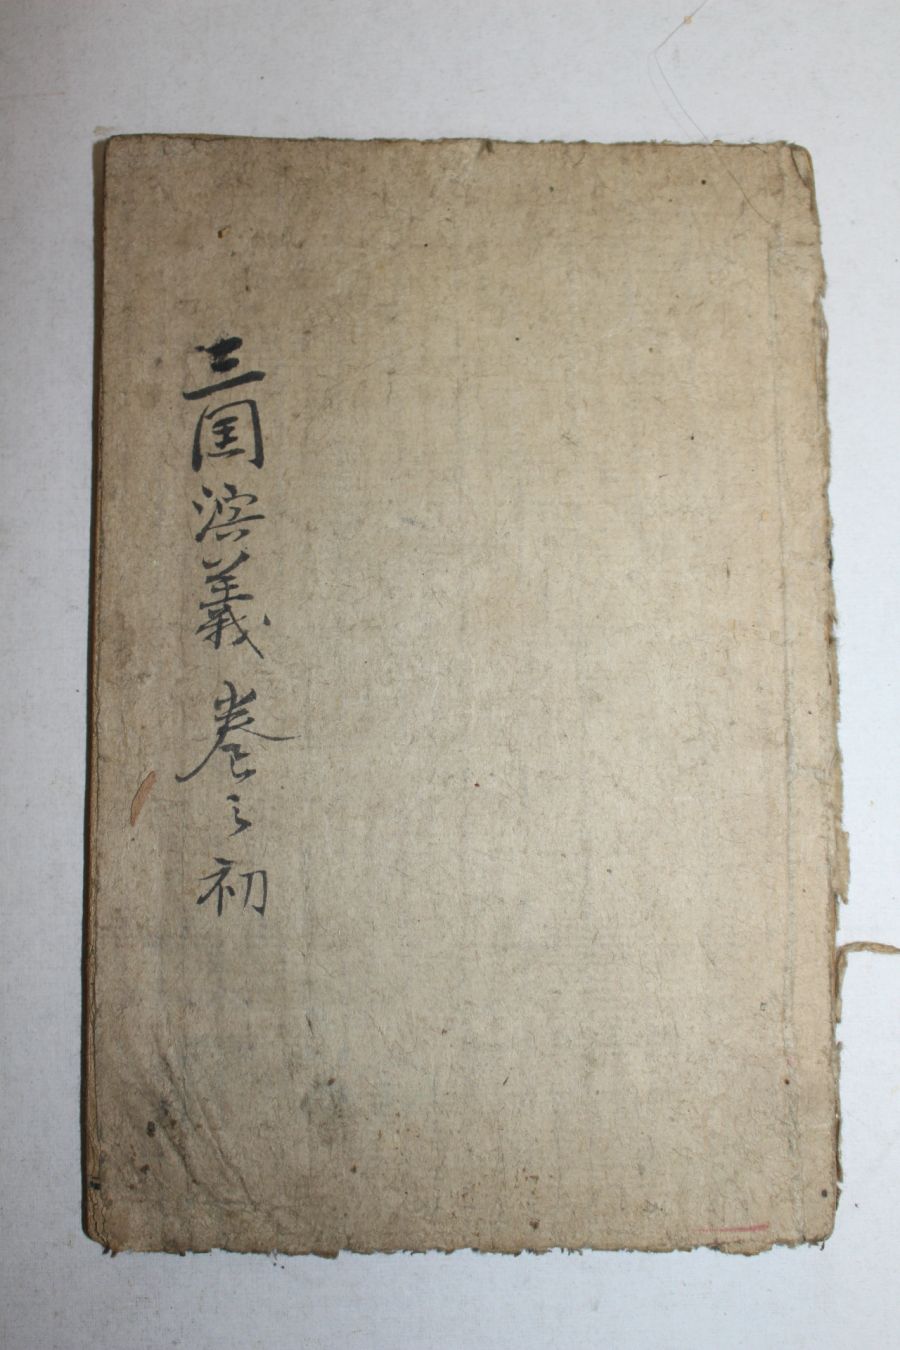 三国演義 卷之初